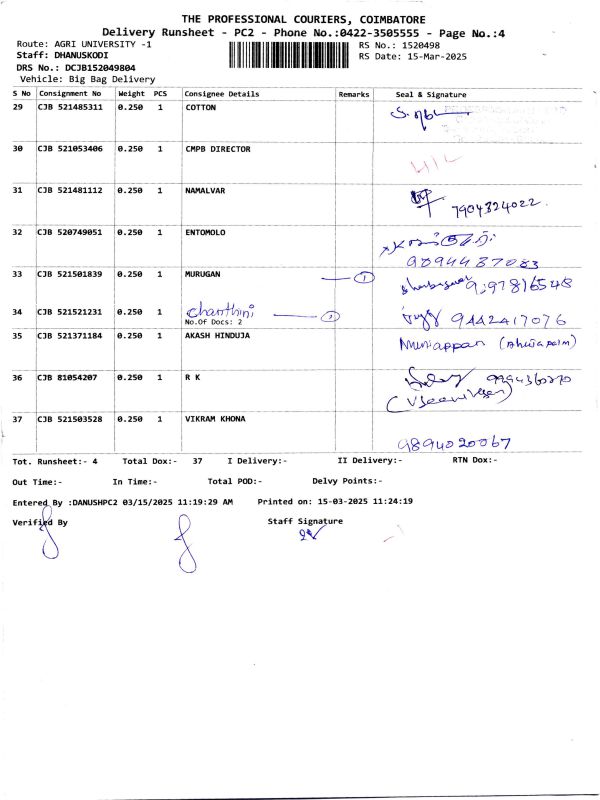 THE PROFESSIONAL COURIERS, COIMBATORE
Delivery Runsheet - PC2 - Phone No.:0422-3505555 - Page No.:4
Route: AGRI UNIVERSITY -1 RS No.: 1520498
Staff: DHANUSKODI RS Date: 15-Mar-2025
DRS No.: DCJB152049804
Vehicle: Big Bag Delivery
S No Consignment No Weight PCS Consignee Details Remarks Seal & Signature
29 CJB 521485311 0.250 1 COTTON
30 CJB 521053406 0.250 1 CMPB DIRECTOR
31 CJB 521481112 0.250 1 NAMALVAR
7904324022.
32 CJB 520749051 0.250 1 ENTOMOLO
9094437083
33 CJB 521501839 0.250 1 MURUGAN 1
34 CJB 521521231 0.250 1 chanthini 2 9442417076
No.Of Docs: 2
35 CJB 521371184 0.250 1 AKASH HINDUJA Muniappan
36 CJB 81054207 0.250 1 R K
37 CJB 521503528 0.250 1 VIKRAM KHONA
9894020067
Tot. Runsheet:- 4 Total Dox:- 37 I Delivery:- II Delivery:- RTN Dox:-
Out Time:- In Time:- Total POD:- Delvy Points:-
Entered By :DANUSHPC2 03/15/2025 11:19:29 AM Printed on: 15-03-2025 11:24:19
Verified By Staff Signature